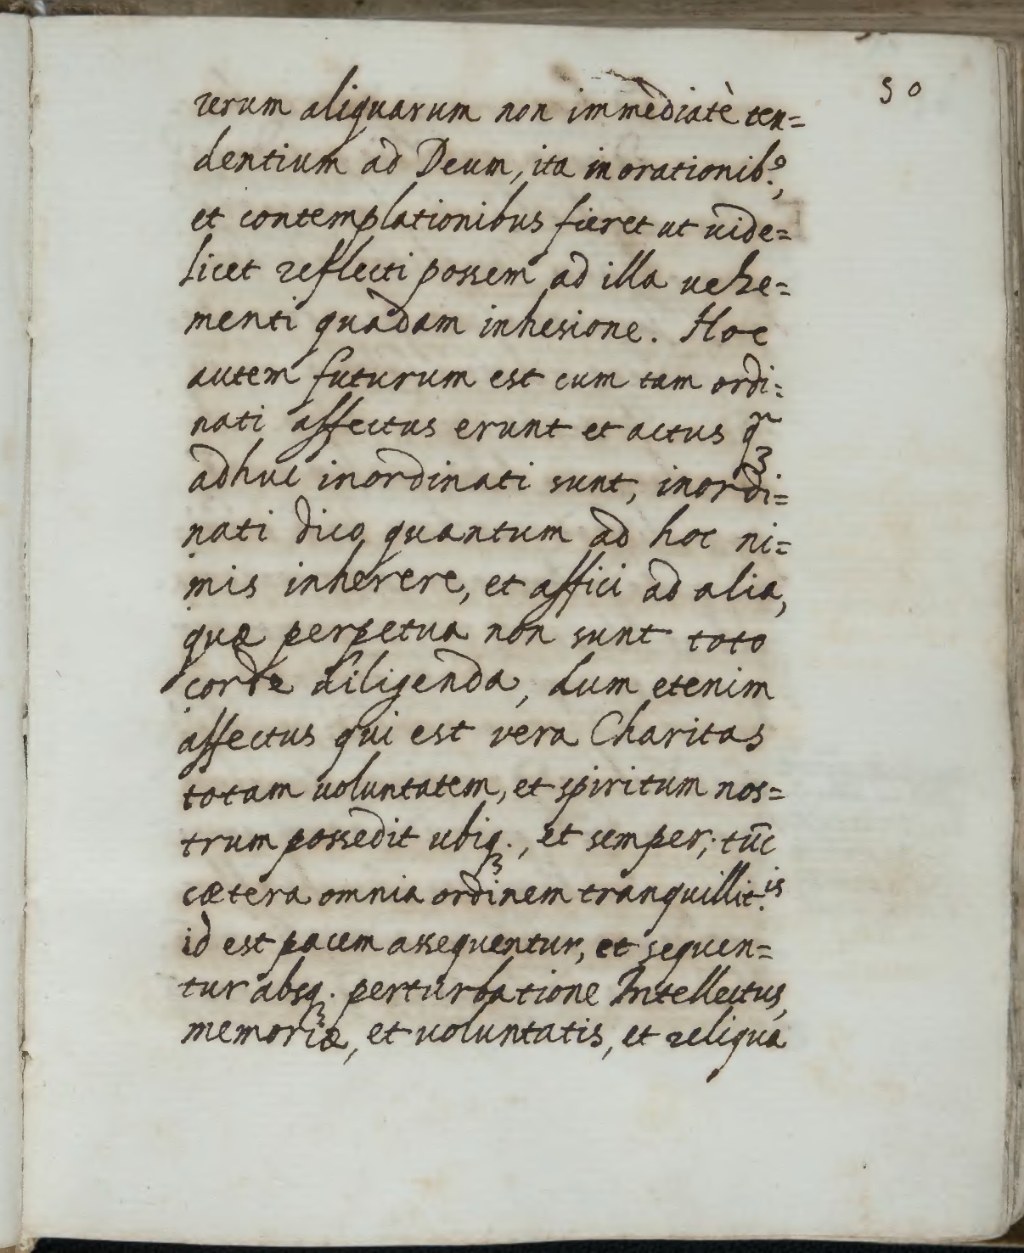 50
rerum aliquarum non immediatè ten=
dentium ad Deum, ita in orationib.º,
et contemplationibus fieret ut uide=
licet reflecti possem ad illa uehe=
menti quadam inhesione. Hoc
autem futurum est cum tam ordi=
nati affectus erunt et actus
adhuc inordinati sunt, inordi=
nati dico quantum ad hoc ni=
mis inherere, et affici ad alia,
quæ perpetua non sunt toto
corde diligenda, dum etenim
affectus qui est vera Charitas
totam uoluntatem, et spiritum nos=
trum possedit ubiq3., et semper; tūc
cætera omnia ordinem tranquillit.is
id est pacem assequentur, et sequen=
tur absq3. perturbatione Intellectus,
memoriæ, et uoluntatis, et reliqua